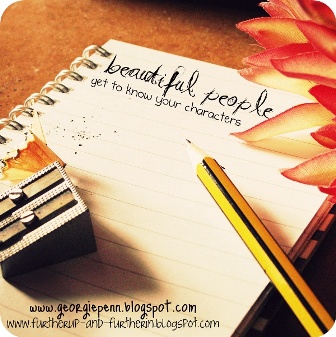 beautiful people
get to know your characters
www.georgiepenn.blogspot.com
www.furtherup-and-furtherin.blogspot.com